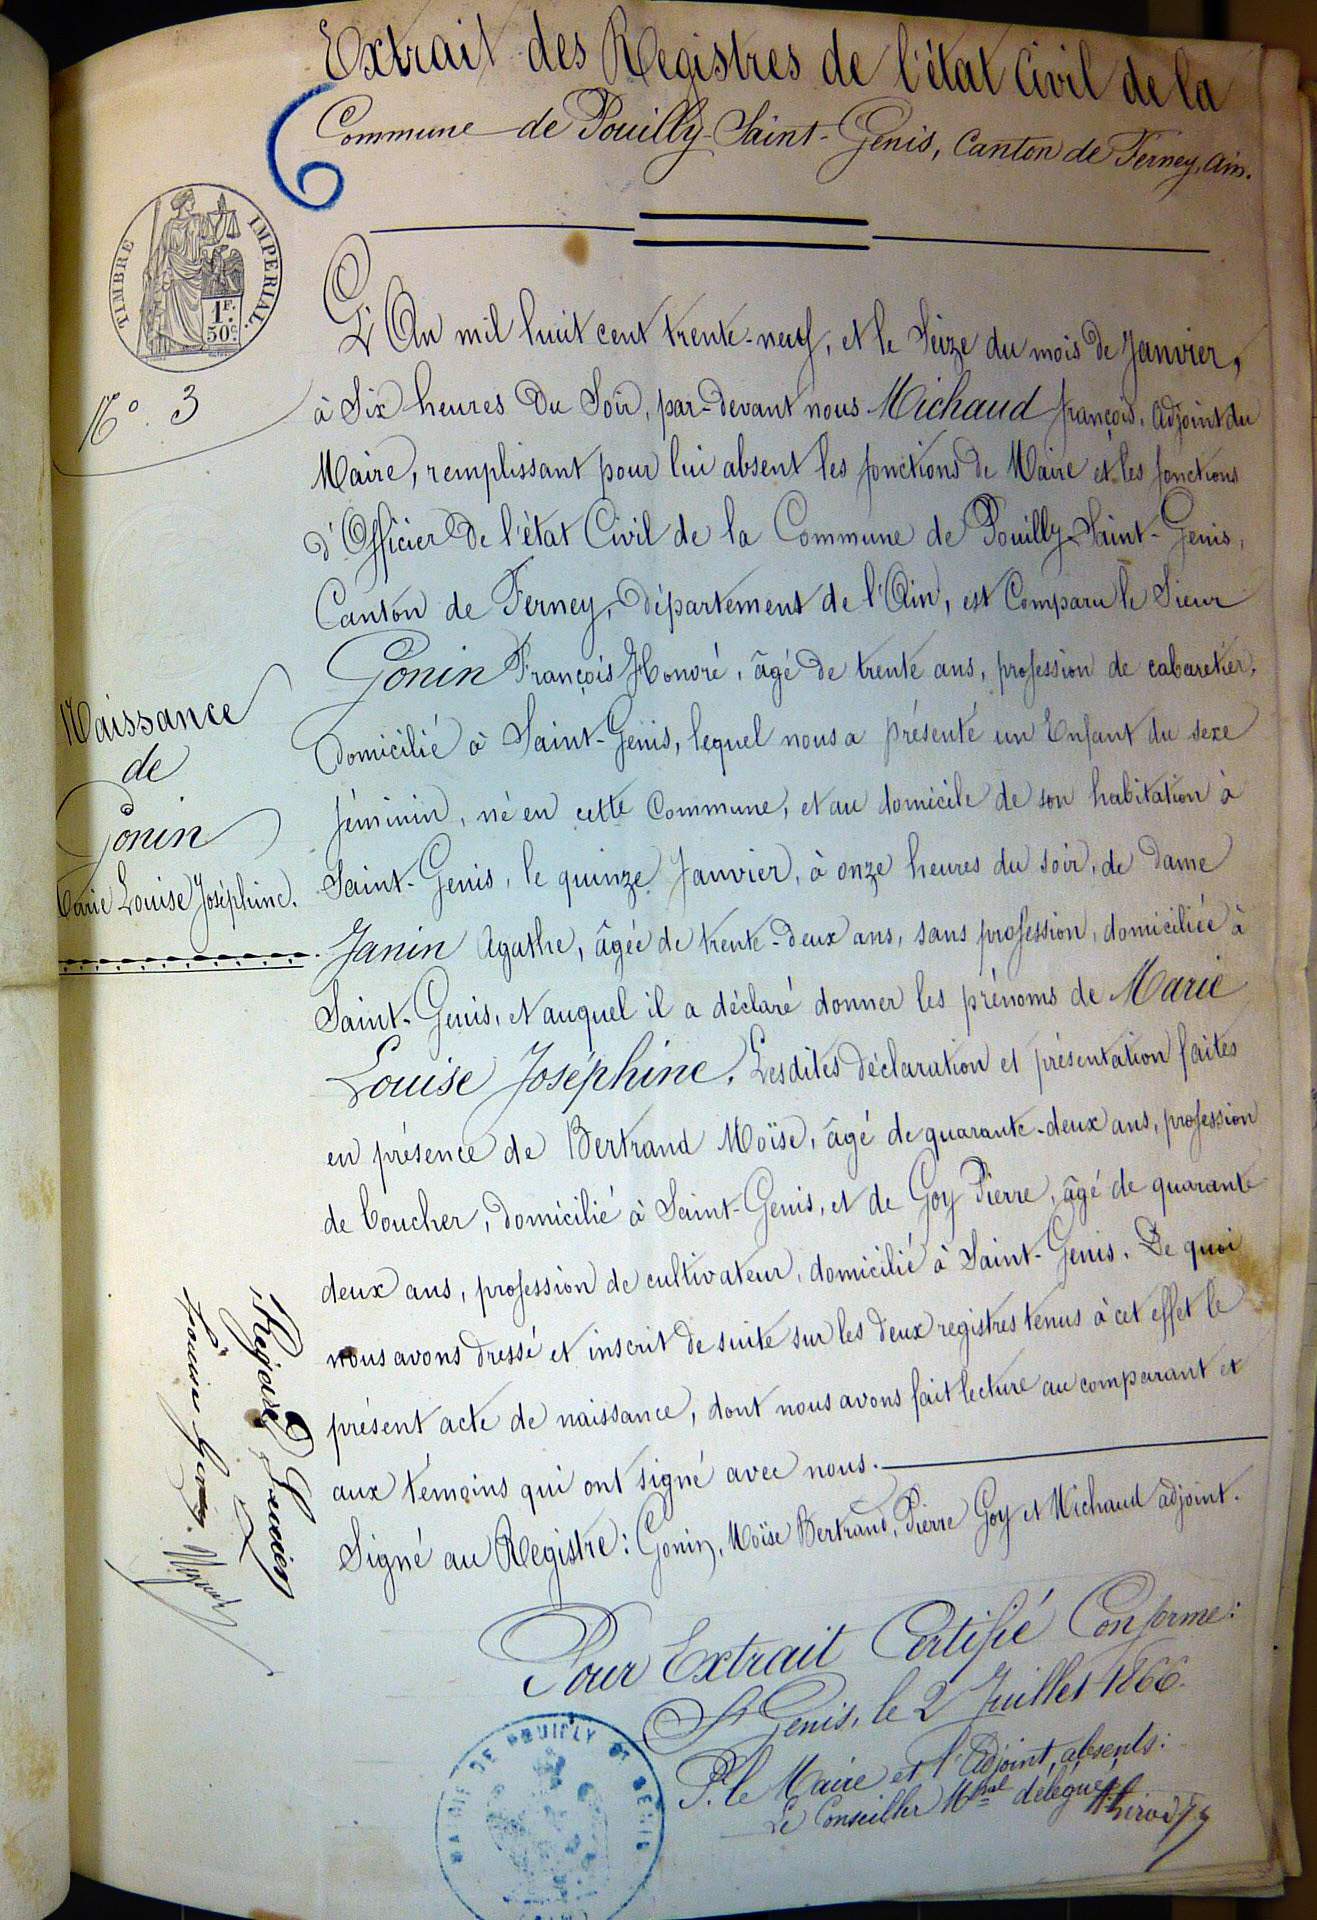 Extrait des Registres de l'état Civil de la
Commune de Pouilly-Saint-Genis, Canton de Ferney, Ain.
6
TIMBRE IMPERIAL.
1F.
50c
N° 3
L'An mil huit cent trente-neuf, et le Seize du mois de Janvier,
à Six heures du Soir, par-devant nous Michaud françois, adjoint du
Maire, remplissant pour lui absent les fonctions de Maire et les fonctions
d'Officier de l'état Civil de la Commune de Pouilly-Saint-Genis,
Canton de Ferney, département de l'Ain, est Comparu le Sieur
Gonin François Honoré, âgé de trente ans, profession de cabaretier,
domicilié à Saint-Genis, lequel nous a présenté un Enfant du sexe
féminin, né en cette Commune, et au domicile de son habitation à
Saint-Genis, le quinze Janvier, à onze heures du soir, de dame
Janin Agathe, âgée de trente-deux ans, sans profession, domiciliée à
Saint-Genis, et auquel il a déclaré donner les prénoms de Marie
Louise Joséphine. Lesdites déclaration et présentation faites
en présence de Bertrand Moïse, âgé de quarante-deux ans, profession
de boucher, domicilié à Saint-Genis, et de Goy Pierre, âgé de quarante
deux ans, profession de cultivateur, domicilié à Saint-Genis. De quoi
nous avons dressé et inscrit de suite sur les deux registres tenus à cet effet le
présent acte de naissance, dont nous avons fait lecture au comparant et
aux témoins qui ont signé avec nous.
Signé au Registre: Gonin, Moïse Bertrand, Pierre Goy et Michaud adjoint.
Naissance
de
Gonin
Marie Louise Joséphine.
Pour Extrait Certifié Conforme:
St Genis, le 2 Juillet 1866.
P. le Maire et l'Adjoint, absents:
Le Conseiller Mpal délégué,
MAIRIE DE POUILLY ST GENIS